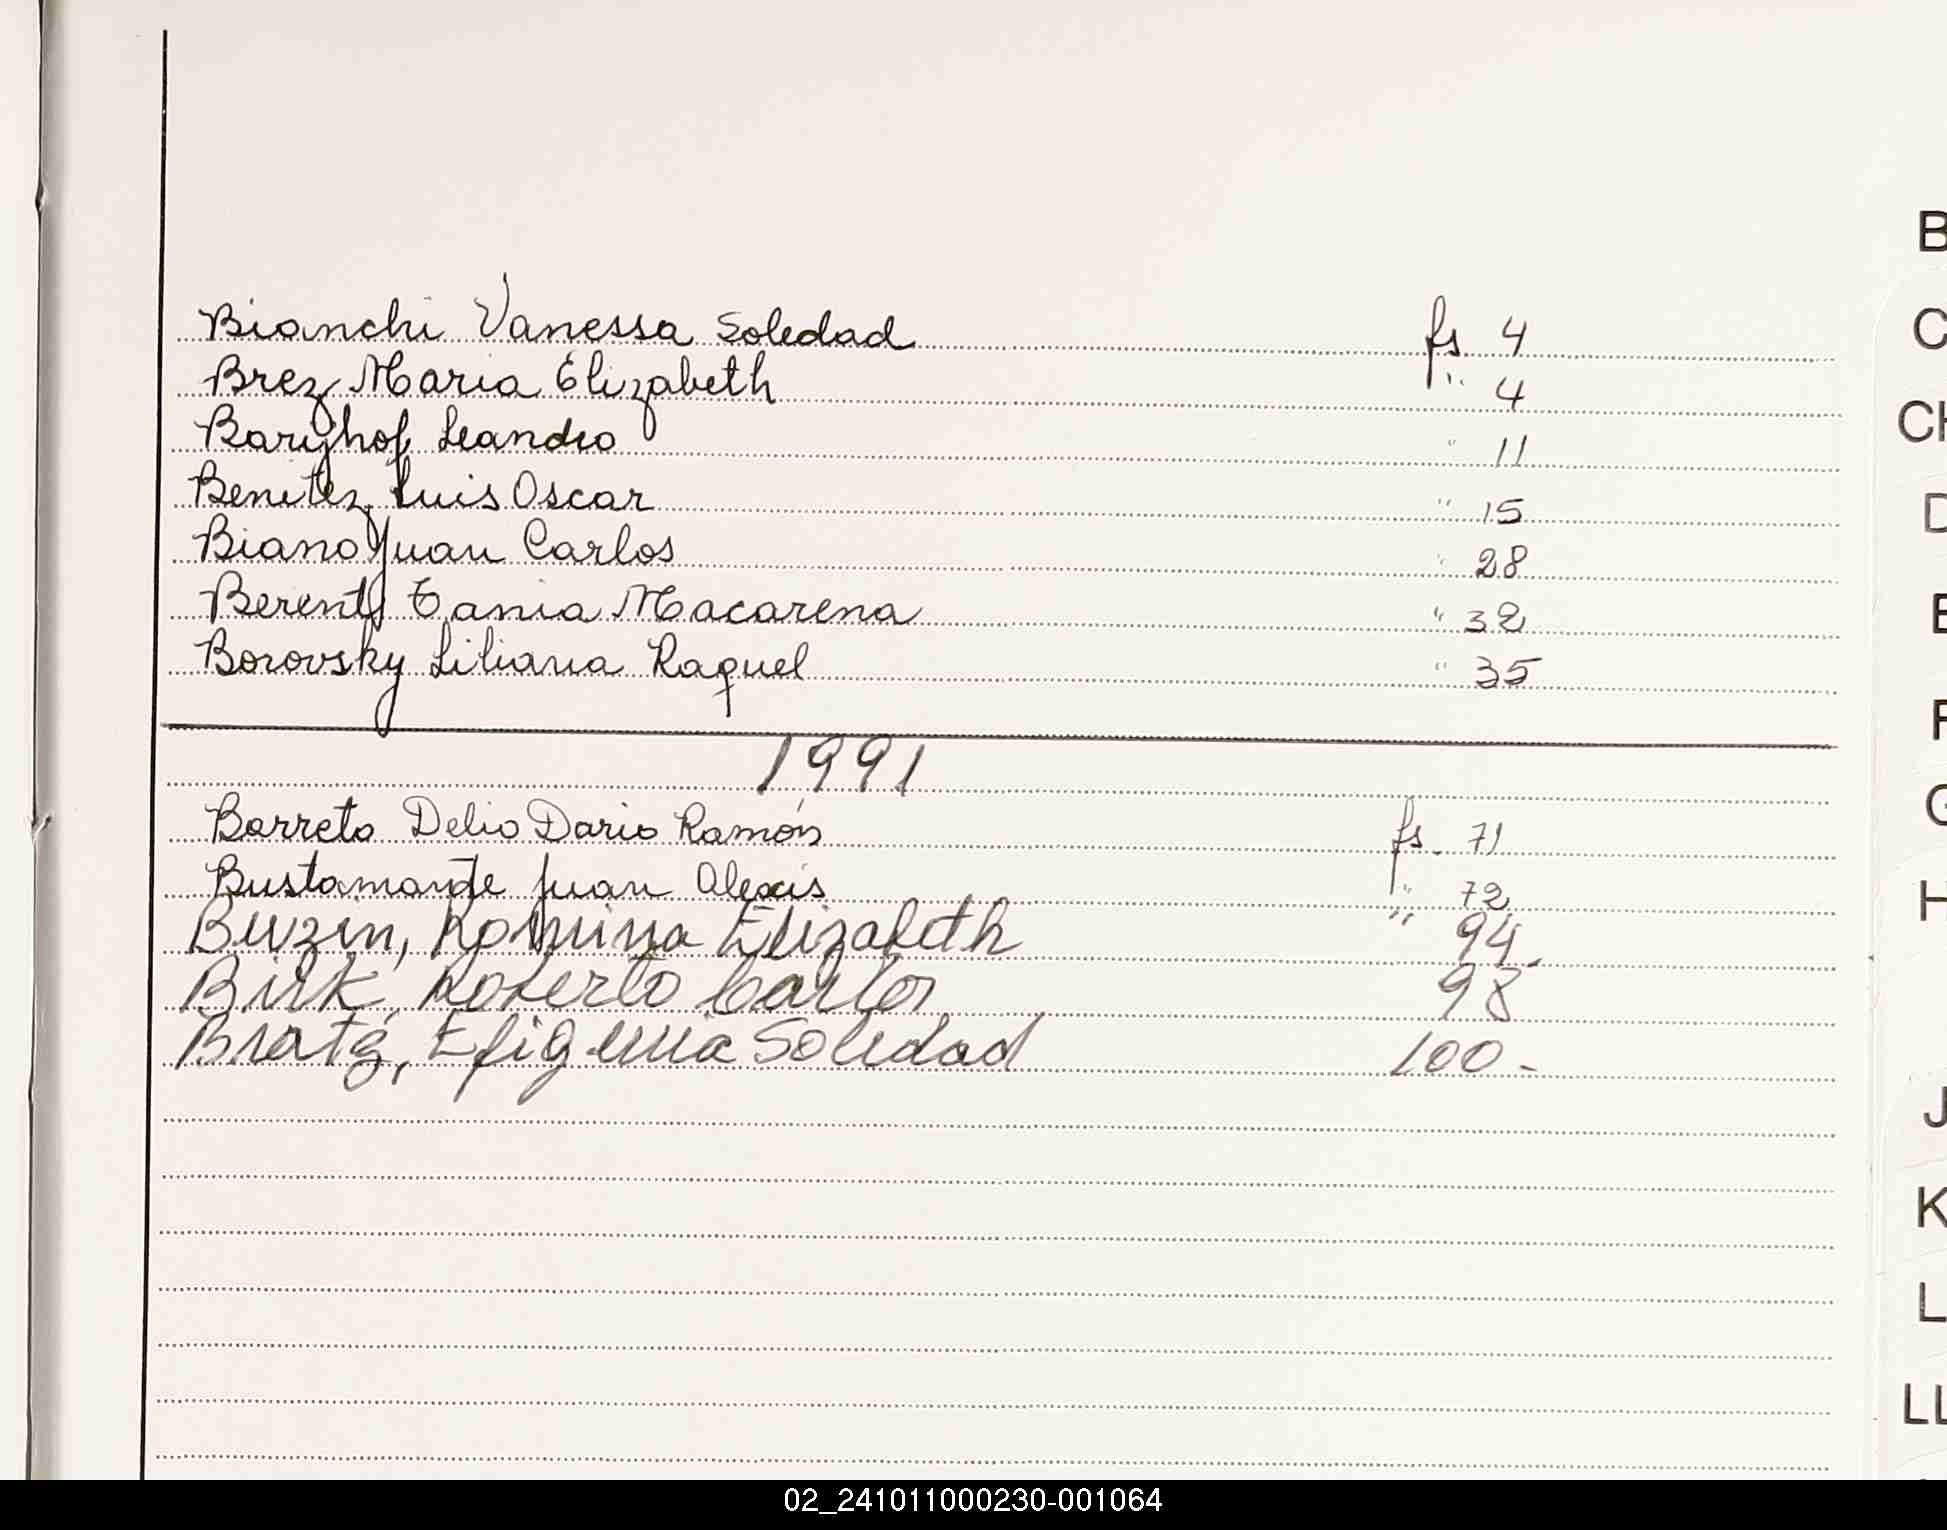 Bianchi Vanessa Soledad fs. 4
Brez Maria Elizabeth " 4
Baryhof Leandro " 11
Benitez Luis Oscar " 15
Biano Juan Carlos " 28
Berent Tania Macarena " 32
Borovsky Liliana Raquel " 35
1991
Barreto Delio Dario Ramón fs. 71
Bustamante Juan Alexis " 72
Buzin, Romina Elizabeth " 94.
Birk, Roberto Carlos 98
Bratz, Efigenia Soledad 100-
B
C
CH
D
E
F
G
H
J
K
L
LL
02_241011000230-001064